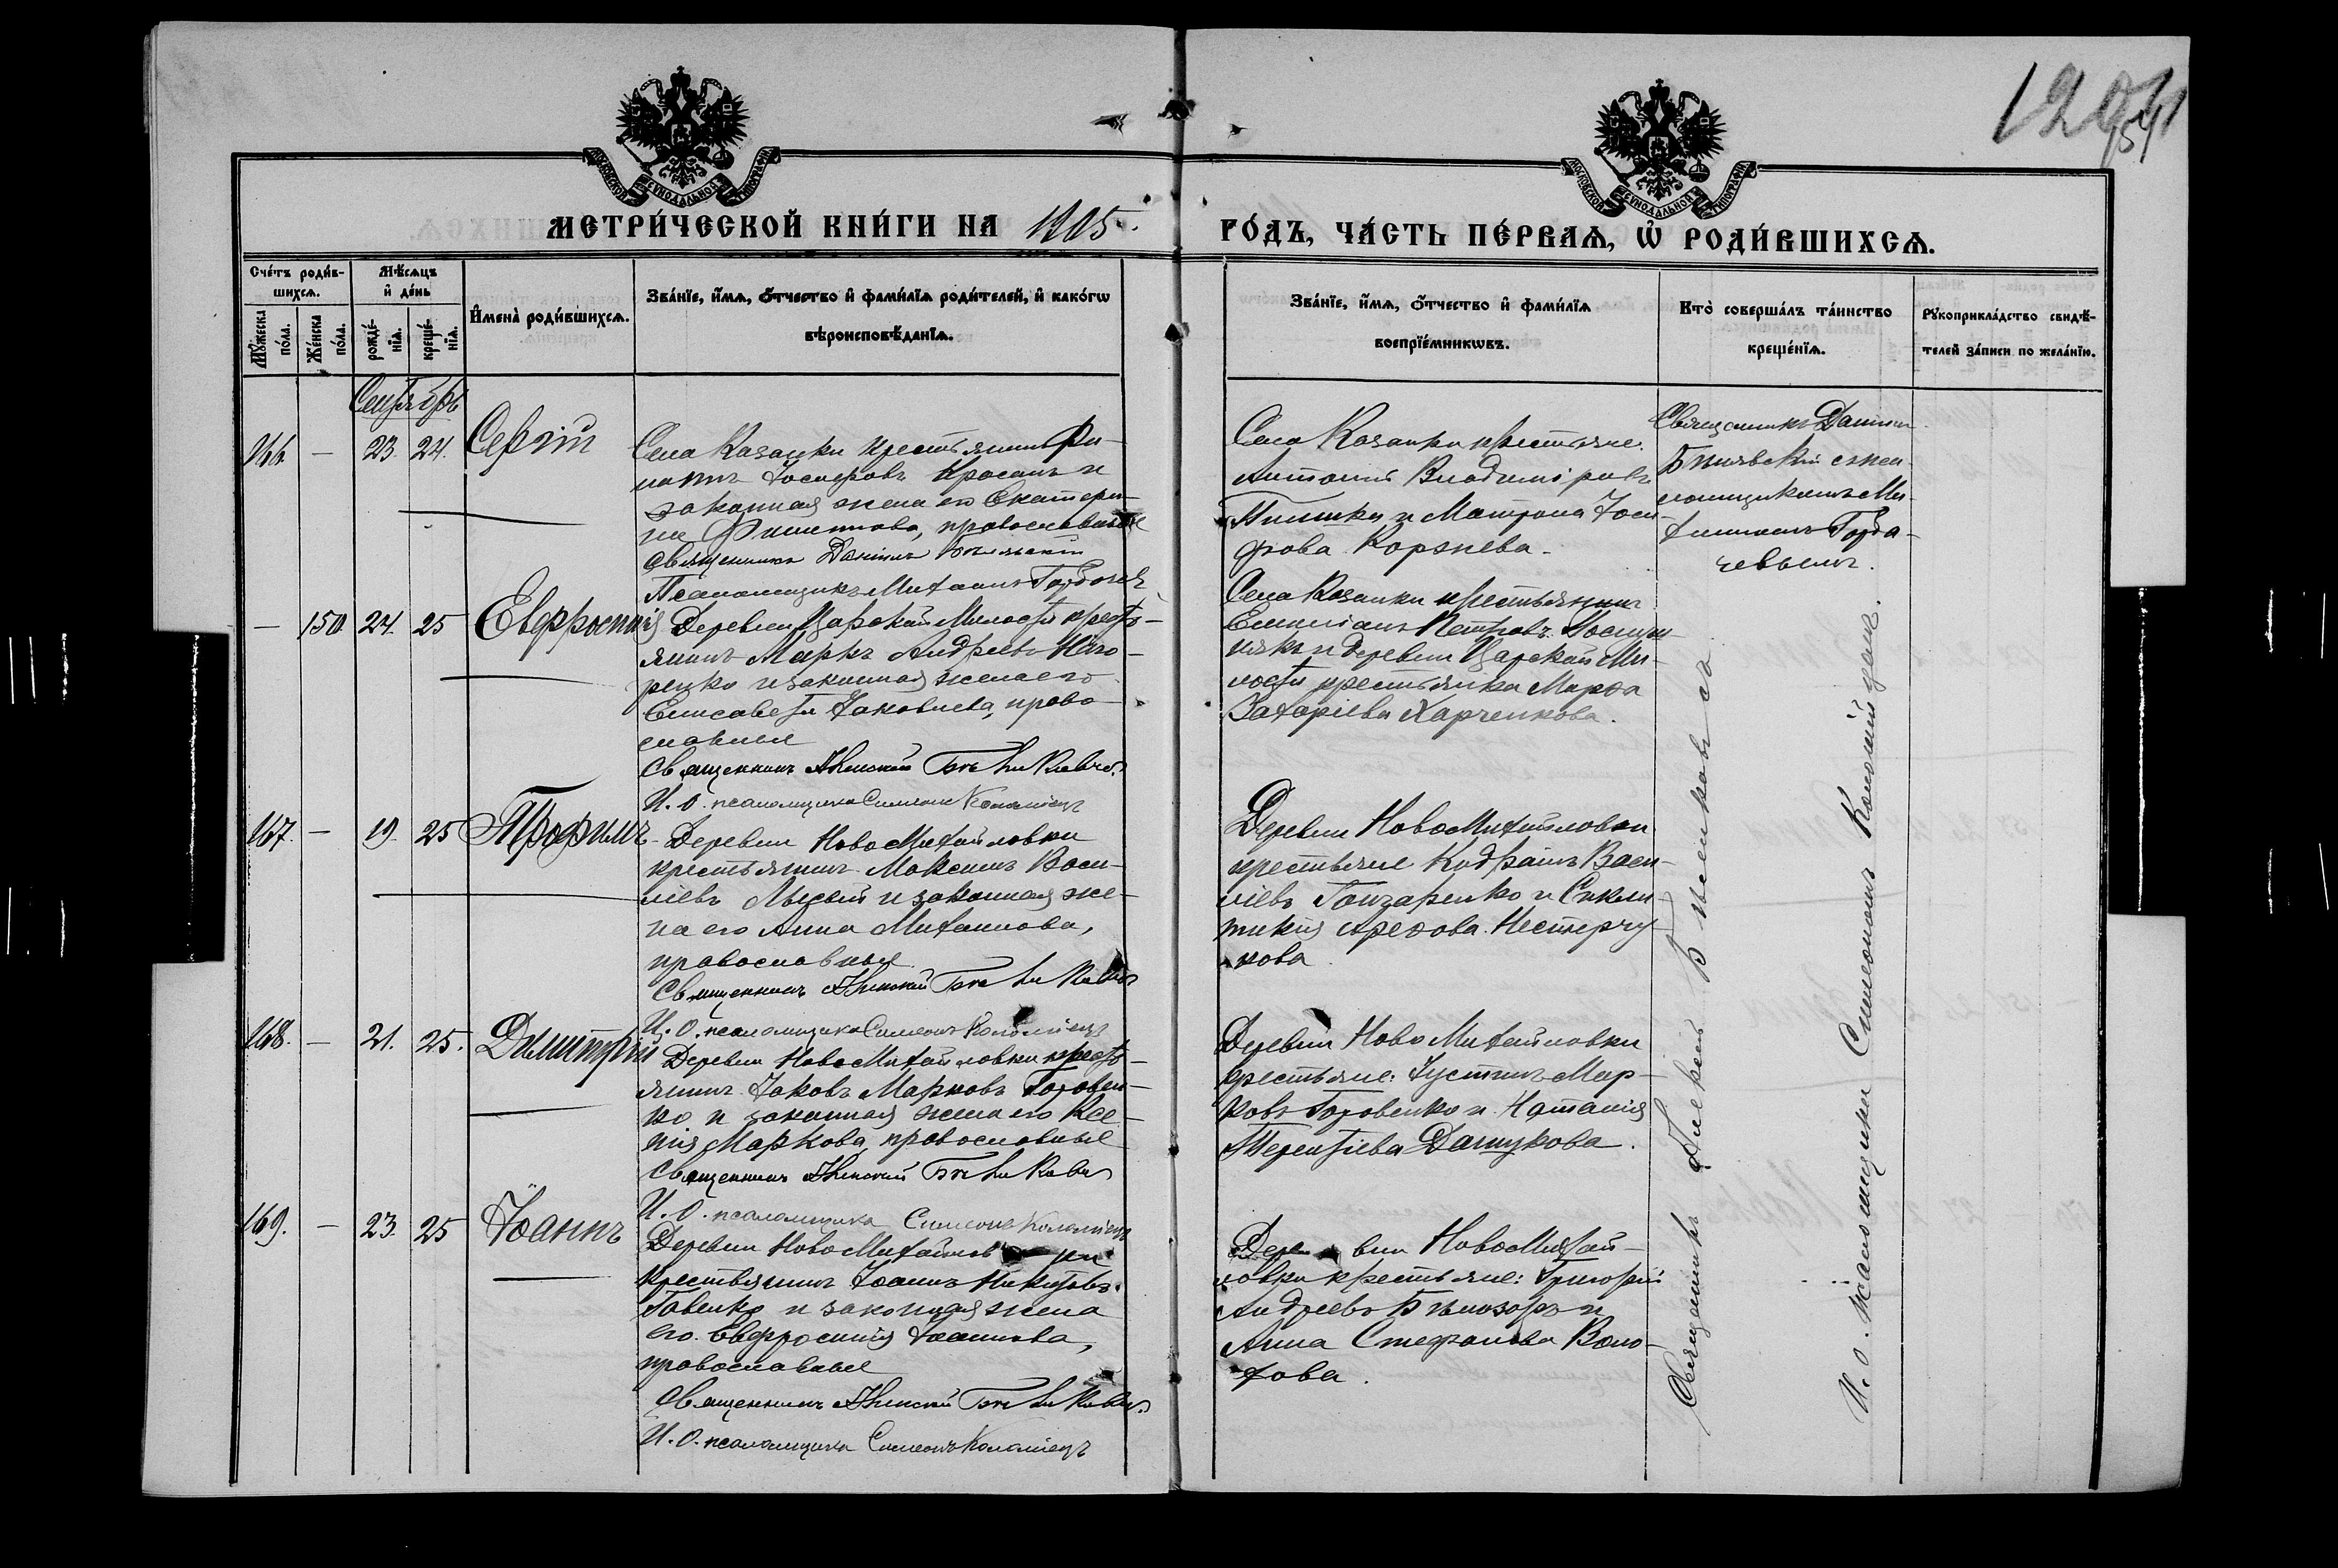 МЕТРИ́ЧЕСКОЙ КНИ́ГИ НА 1905
ГО́ДЪ, ЧА́СТЬ ПЕ́РВАѦ, Ѡ҆ РОДИ́ВШИХСѦ.
Сче́тъ роди́в-
шихсѧ.
Мꙋ́жеска по́ла.
Же́нска по́ла.
Мѣ́сѧцъ и҆ де́нь
рожде́-
нїѧ.
креще́-
нїѧ.
И҆мена̀ роди́вшихсѧ.
Зва́нїе, и҆́мѧ, ѻ҆́тчество и҆ фами́лїѧ роди́телей, и҆ како́гѡ
вѣроисповѣ́данїѧ.
Зва́нїе, и҆́мѧ, ѻ҆́тчество и҆ фами́лїѧ
воспрїе́мникѡвъ.
Кто̀ соверша́лъ та́инство
креще́нїѧ.
Рꙋкоприкла́дство свидѣ́-
телей за́писи по жела́нїю.
Сентябрь
166. — 23. 24. Сергій
Села Казанки крестьянинъ Фи-
липпъ Іосифовъ и
законная жена его Екатери-
на Филиппова, православные
Священникъ Даніилъ
Псаломщикъ Михаилъ
Села Казанки крестьяне:
Антоній Владиміровъ
и Матрона Іоси-
фова Коржева.
Священникъ Даніилъ
съ псаломщикомъ Ми-
хаиломъ Горба-
чевымъ.
— 150 24. 25 Евфросинія
Деревни Царской Милости кресть-
янинъ Маркъ Андреевъ Наго-
рецко и законная жена его
Елисавета Іаковлева, право-
славные
Священникъ Алексій
И. о. псаломщика Симеонъ Коломіецъ
Села Казанки крестьянинъ
Емиліанъ Петровъ
и деревни Царской Ми-
лости крестьянка Марѳа
Захаріева Харченкова.
167. — 19. 25 Трофимъ
Деревни НовоМихайловки
крестьянинъ Максимъ Васи-
ліевъ Лысый и законная же-
на его Анна Михаилова,
православные
Священникъ Алексій
И. о. псаломщика Симеонъ Коломіецъ
Деревни НовоМихайловки
крестьяне Кодратъ Васи-
ліевъ Гонзаренко и Синкли-
тикія Нестерчу-
кова.
168. — 21. 25. Димитрій
Деревни НовоМихайловки кресть-
янинъ Іаковъ Марковъ Головен-
ко и законная жена его Ксе-
нія Маркова, православные
Священникъ Алексій
И. о. псаломщика Симеонъ Коломіецъ
Деревни НовоМихайловки
крестьяне: Іустинъ Мар-
ковъ Головенко и Наталія
Терентіева Дашукова.
169. — 23. 25 Іоаннъ
Деревни НовоМихайловки
крестьянинъ Іоаннъ Никитовъ
Говенко и законная жена
его Евфросинія Іоаннова,
православные
Священникъ Алексій
И. о. псаломщика Симеонъ Коломіецъ
Деревни НовоМихай-
ловки крестьяне: Григорій
Андреевъ Бѣлозоръ и
Анна Стефанова Воло-
хова.
Священникъ Алексій
И. о. псаломщика Симеономъ Коломійцемъ.